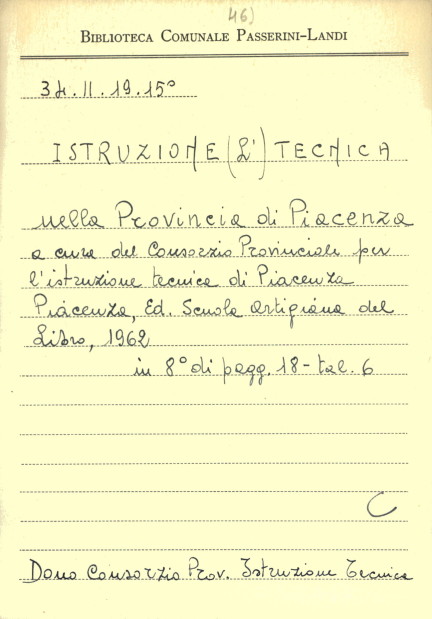 46)
BIBLIOTECA COMUNALE PASSERINI-LANDI
3H.II.19.15°
ISTRUZIONE (L') TECNICA
nella Provincia di Piacenza
a cura del Consorzio Provinciale per
l'istruzione tecnica di Piacenza
Piacenza, Ed. Scuola Artigiana del
Libro, 1962
in 8° di pagg. 18 - tal. 6
C
Dono Consorzio Prov. Istruzione Tecnica